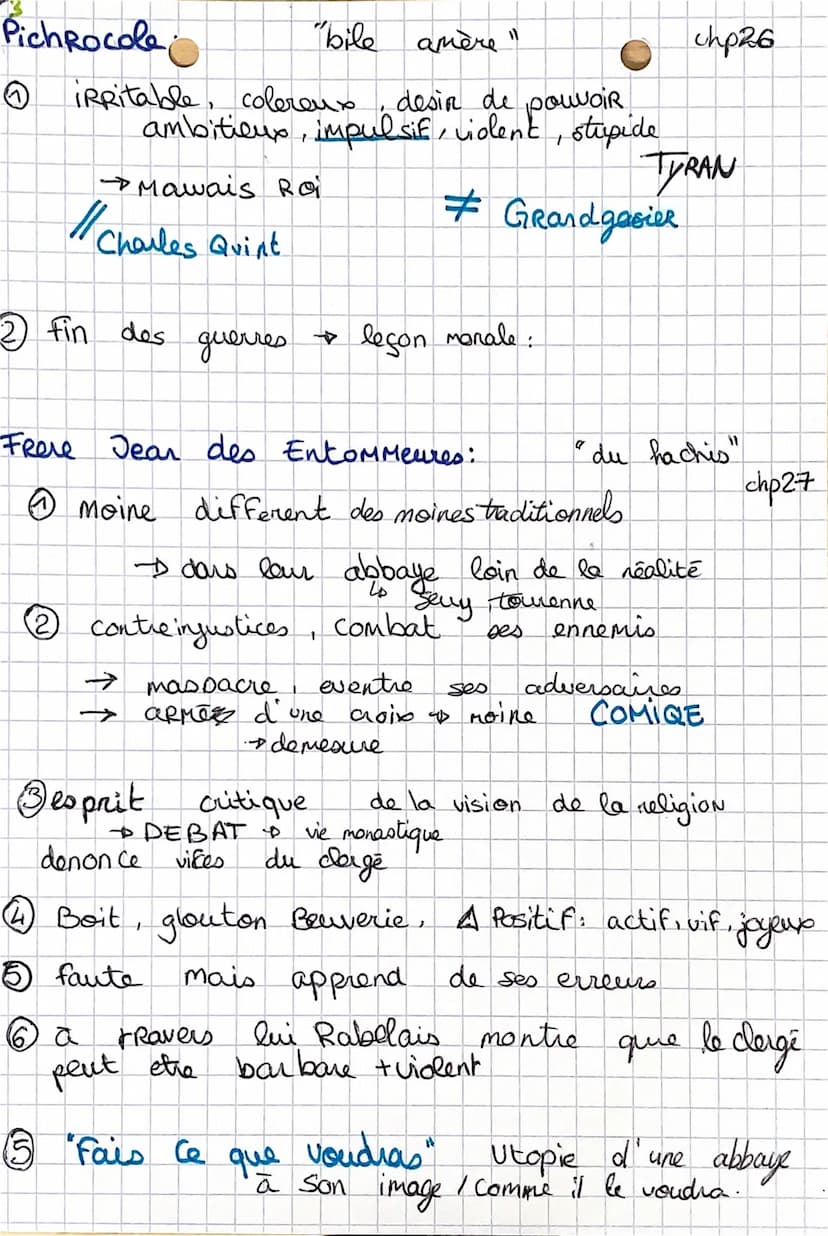 Pichrocole: "bile amère" chp26
① irritable, colereux, desir de pouvoir
ambitieux, impulsif, violent, stupide
TYRAN
→ Mauvais Roi
≠ Grandgosier
// Charles Quint
② fin des guerres → leçon morale :
Frere Jean des Entommeures: "du hachis"
chp27
① moine different des moines traditionnels
→ dans leur abbaye loin de la réalité
↳ Seuy, tourenne
② contre injustices, combat ses ennemis
→ massacre, eventre ses adversaires
→ armée d'une croix → moine COMIQE
→ demesure
③ esprit critique de la vision de la religion
→ DEBAT → vie monastique
denonce vices du clergé
④ Boit, glouton Beuverie, ⚠ Positif: actif, vif, joyeux
⑤ faute mais apprend de ses erreurs
⑥ à travers lui Rabelais montre que le clergé
peut etre barbare + violent
⑤ "Fais ce que voudras" Utopie d'une abbaye
à son image / comme il le voudra.